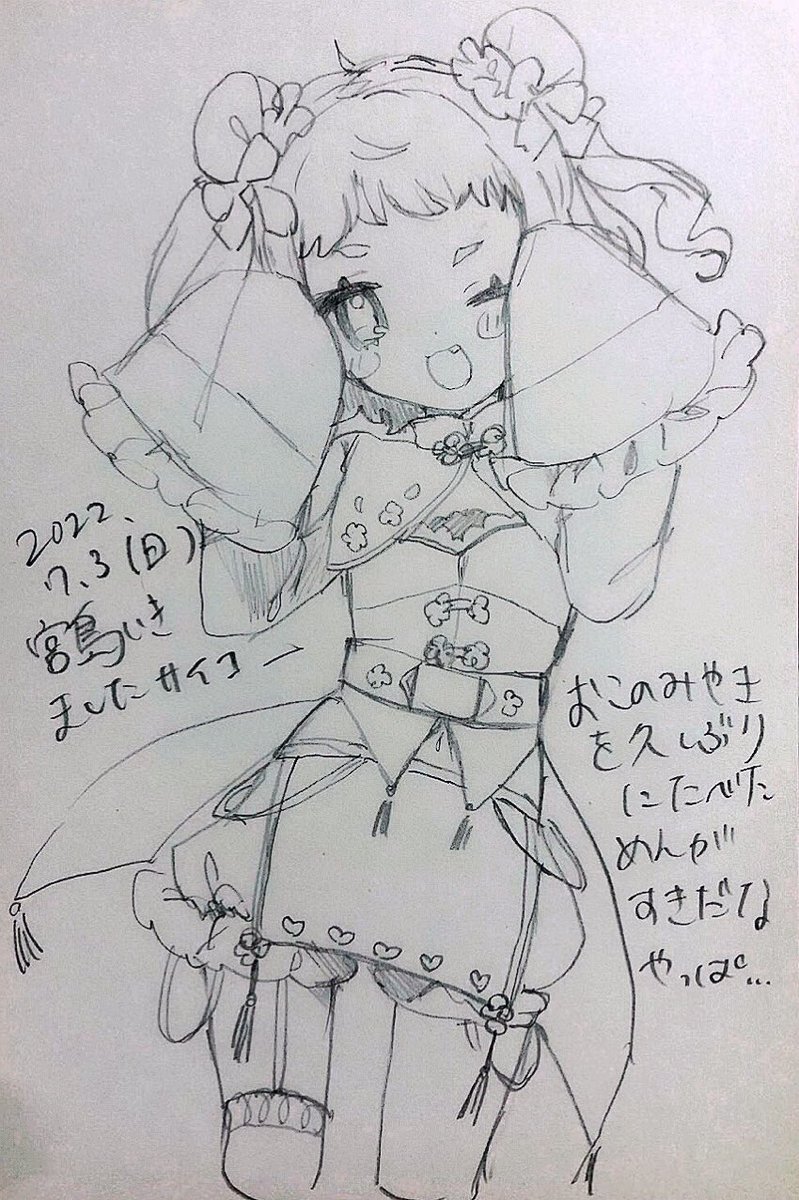 2022.
7.3(日)
宮島いき
ましたサイコー
おこのみやき
を久しぶり
にたべた
めんが
すきだな
やっぱ…